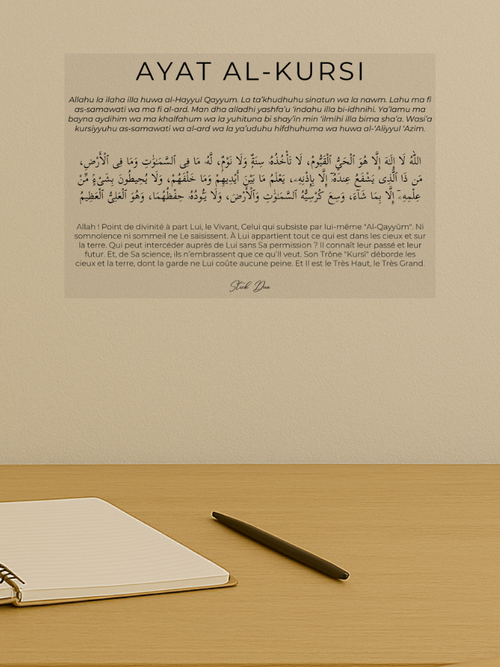 AYAT AL-KURSI
Allahu la ilaha illa huwa al-Hayyul Qayyum. La ta'khudhuhu sinatun wa la nawm. Lahu ma fi
as-samawati wa ma fi al-ard. Man dha alladhi yashfa'u 'indahu illa bi-idhnihi. Ya'lamu ma
bayna aydihim wa ma khalfahum wa la yuhituna bi shay'in min 'ilmihi illa bima sha'a. Wasi'a
kursiyyuhu as-samawati wa al-ard wa la ya'uduhu hifdhuhuma wa huwa al-'Aliyyul 'Azim.
اللَّهُ لَا إِلَٰهَ إِلَّا هُوَ ٱلْحَيُّ ٱلْقَيُّومُ، لَا تَأْخُذُهُۥ سِنَةٌ وَلَا نَوْمٌ، لَّهُۥ مَا فِى ٱلسَّمَٰوَٰتِ وَمَا فِى ٱلْأَرْضِ،
مَن ذَا ٱلَّذِى يَشْفَعُ عِندَهُۥٓ إِلَّا بِإِذْنِهِۦ، يَعْلَمُ مَا بَيْنَ أَيْدِيهِمْ وَمَا خَلْفَهُمْ، وَلَا يُحِيطُونَ بِشَىْءٍ مِّنْ
عِلْمِهِۦٓ إِلَّا بِمَا شَآءَ، وَسِعَ كُرْسِيُّهُ ٱلسَّمَٰوَٰتِ وَٱلْأَرْضَ، وَلَا يَـُٔودُهُۥ حِفْظُهُمَا، وَهُوَ ٱلْعَلِىُّ ٱلْعَظِيمُ
Allah ! Point de divinité à part Lui, le Vivant, Celui qui subsiste par lui-même "Al-Qayyûm". Ni
somnolence ni sommeil ne Le saisissent. À Lui appartient tout ce qui est dans les cieux et sur
la terre. Qui peut intercéder auprès de Lui sans Sa permission ? Il connaît leur passé et leur
futur. Et, de Sa science, ils n'embrassent que ce qu'Il veut. Son Trône "Kursî" déborde les
cieux et la terre, dont la garde ne Lui coûte aucune peine. Et Il est le Très Haut, le Très Grand.
Stick